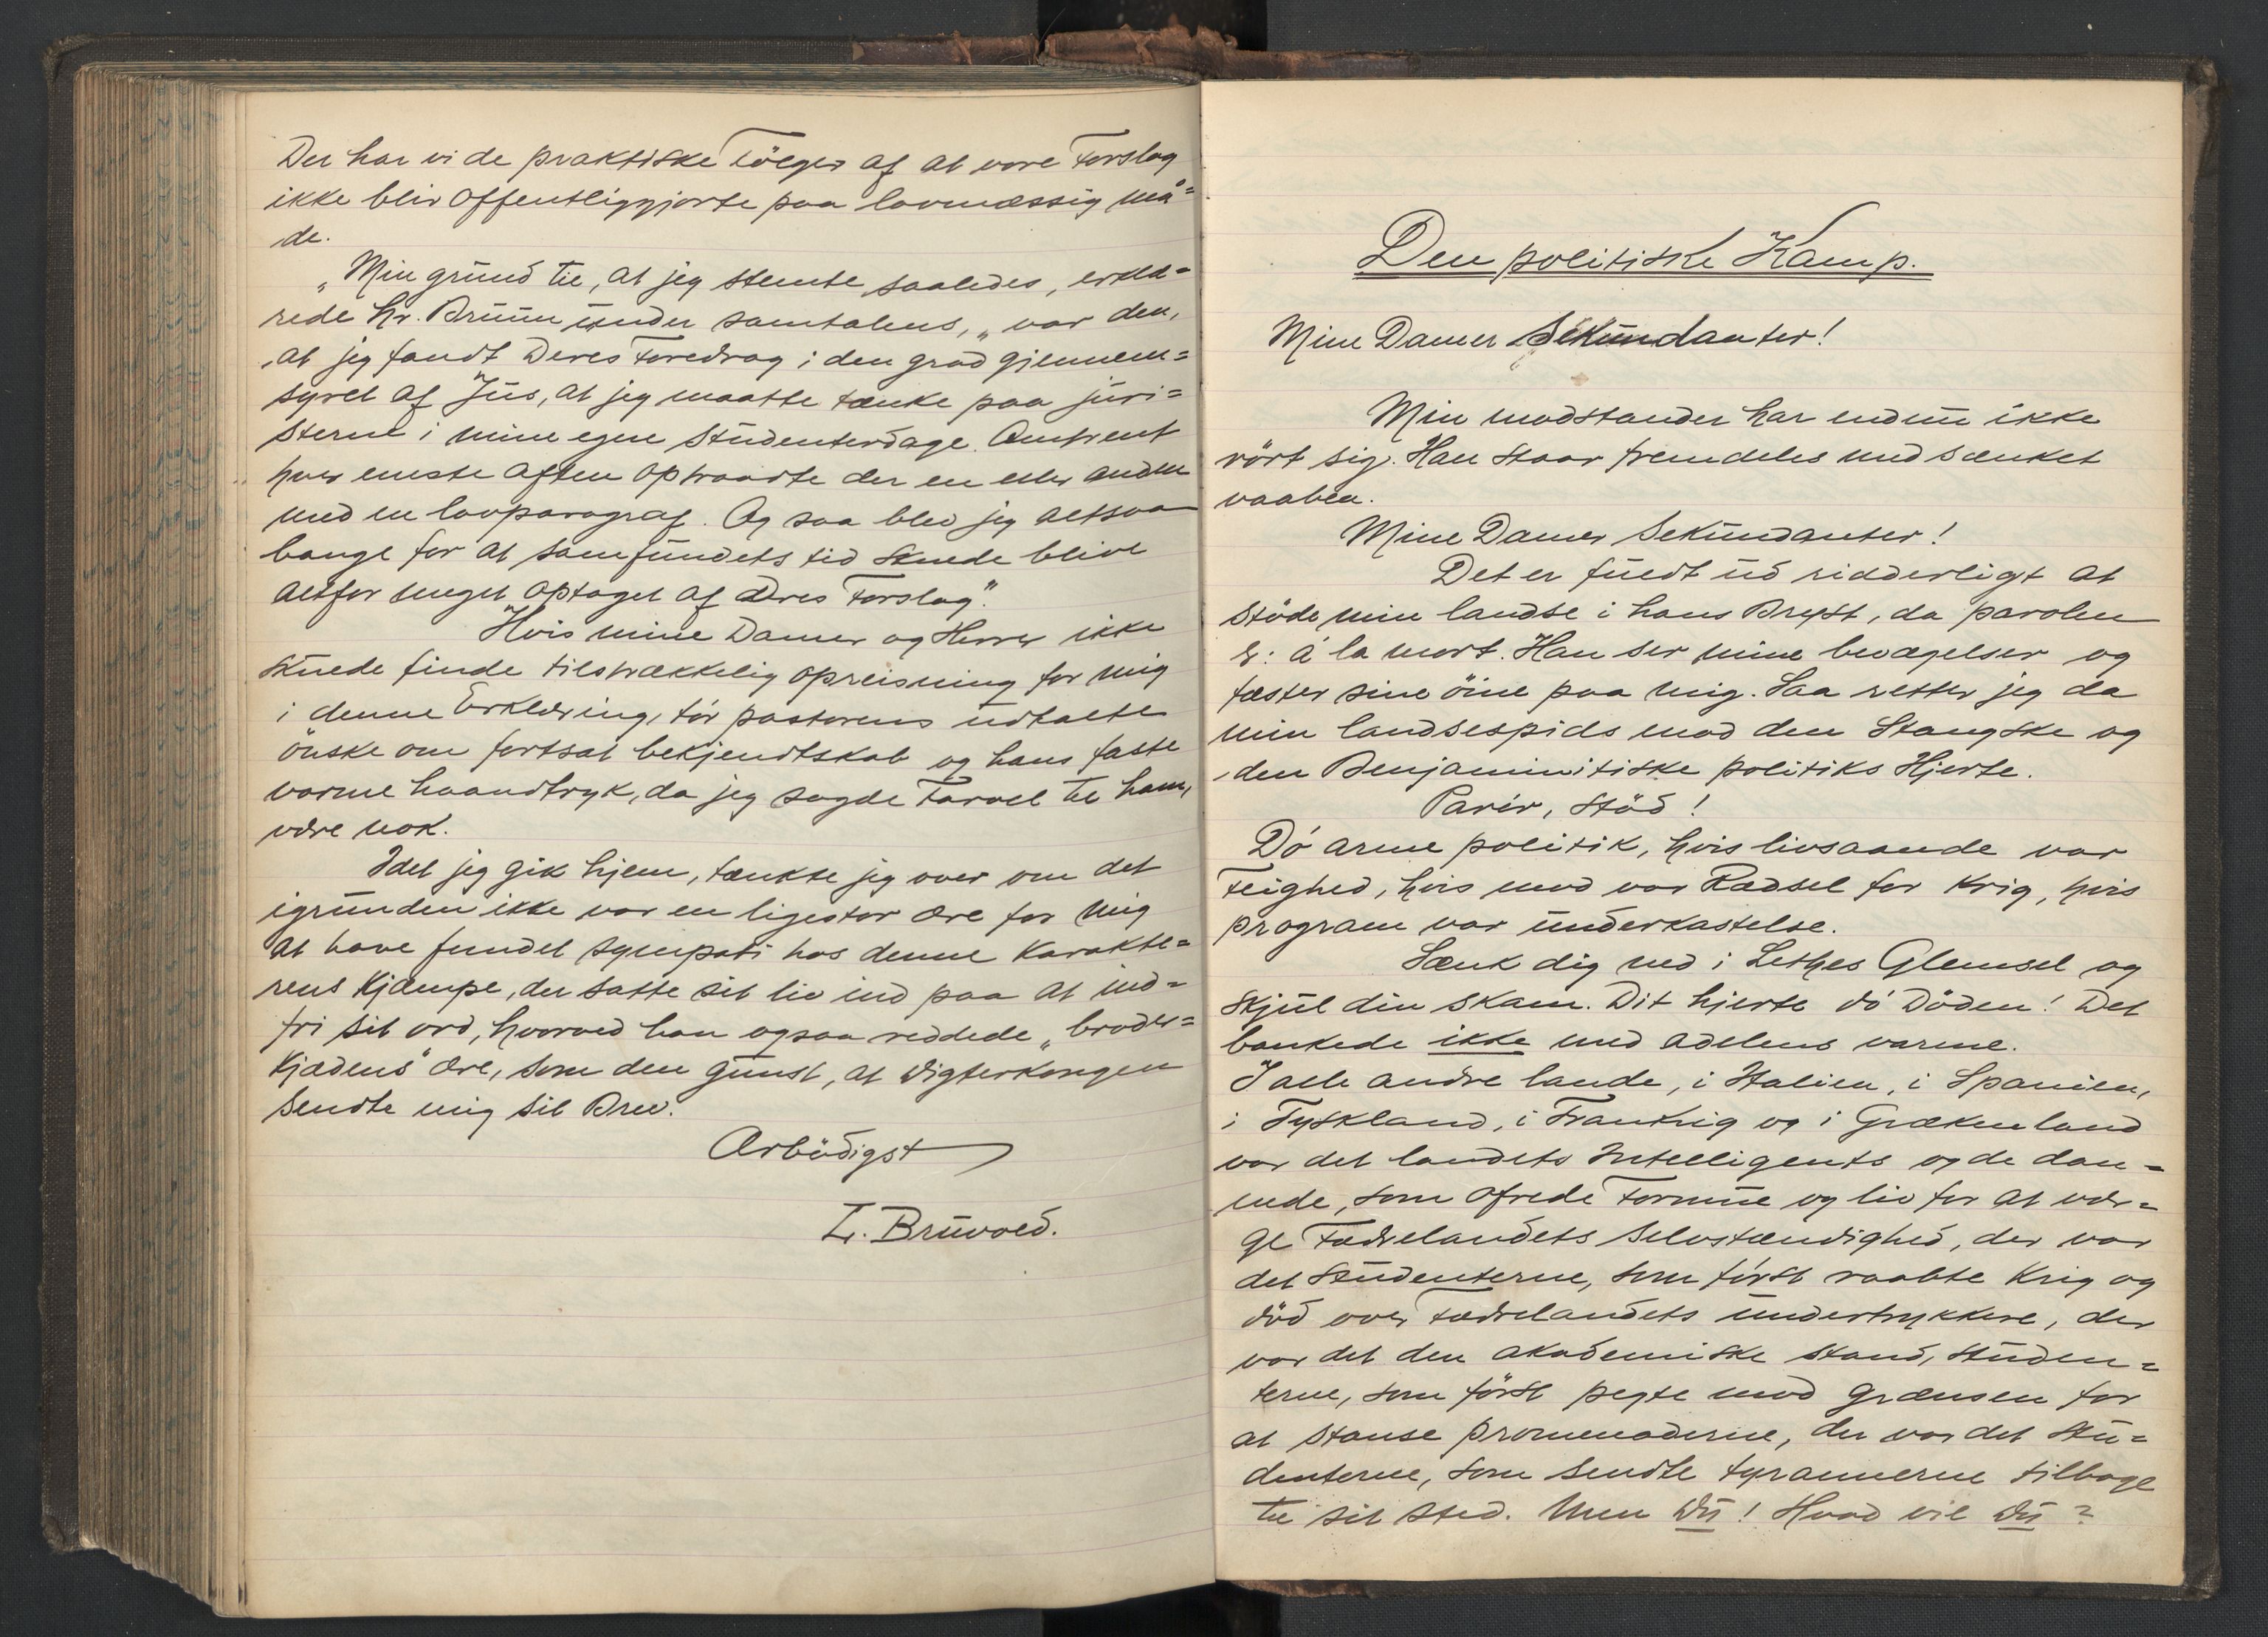 Der har vi de praktiske Fölger af at vore Forslag
ikke blir offentliggjorte paa lovmæssig må=
de.
„Min grund til, at jeg stemte saaledes, erklæ=
rede hr. Bruun under samtalens, „var den,
at jeg fandt Deres Foredrag i den grad gjennem=
syret af Jus, at jeg maatte tænke paa juri=
sterne i mine egne Studenterdage. Omtrent
hver eneste aften optraadte der en eller anden
med en lovparagraf. Og saa blev jeg altsaa
bange for at samfundets tid skulde blive
altfor meget optaget af Deres Forslag“.
Hvis mine Damer og Herrer ikke
skulde finde tilstrækkelig opreisning for mig
i denne Erklæring, tör pastorens udtalte
önske om fortsat bekjendtskab og hans faste
varme haandtryk, da jeg sagde Farvel til ham,
være nok.
Idet jeg gik hjem, tænkte jeg over om det
igrunden ikke var en ligestor ære for mig
at have fundet sympati hos denne Karakte=
rens Kjæmpe, der satte sit liv ind paa at ind=
fri sit ord, hvorved han ogsaa reddede „broder=
kjædens“ ære, som den gunst, at Digterkongen
sendte mig sit Brev.
Ærbödigst
L. Bruvold.
Den politiske Kamp.
Mine Damer Sekundanter!
Min modstander har endnu ikke
rört sig. Han staar fremdeles med sænket
vaaben.
Mine Damer Sekundanter!
Det er fuldt ud ridderligt at
stöde min landse i hans Bryst, da parolen
er: á la mort. Han ser mine bevægelser og
fæster sine öine paa mig. Saa retter jeg da
min landsespids mod den Stangske og
den Benjaminitiske politiks Hjerte.
Parér, Stöd!
Dö arme politik, hvis livsaande var
Feighed, hvis mod var Rædsel for Krig, hvis
program var underkastelse.
Sænk dig ned i Lethes Glemsel og
skjul din skam. Dit hjerte dö Döden! Det
bankede ikke med adelens varme.
I alle andre lande, i Italien, i Spanien,
i Tyskland, i Frankrig og i Grækenland
var det landets Intelligents og de dan=
nede, som ofrede Formue og liv for at vær=
ge Fædrelandets Selvstændighed, der var
det Studenterne, som först raabte Krig og
död over Fædrelandets undertrykkere, der
var det den akademiske stand, studen=
terne, som först pegte mod Grænsen for
at stanse promenaderne, der var det Stu=
denterne, som sendte tyrannerne tilbage
til sit sted. Men Du! Hvad vil Du?